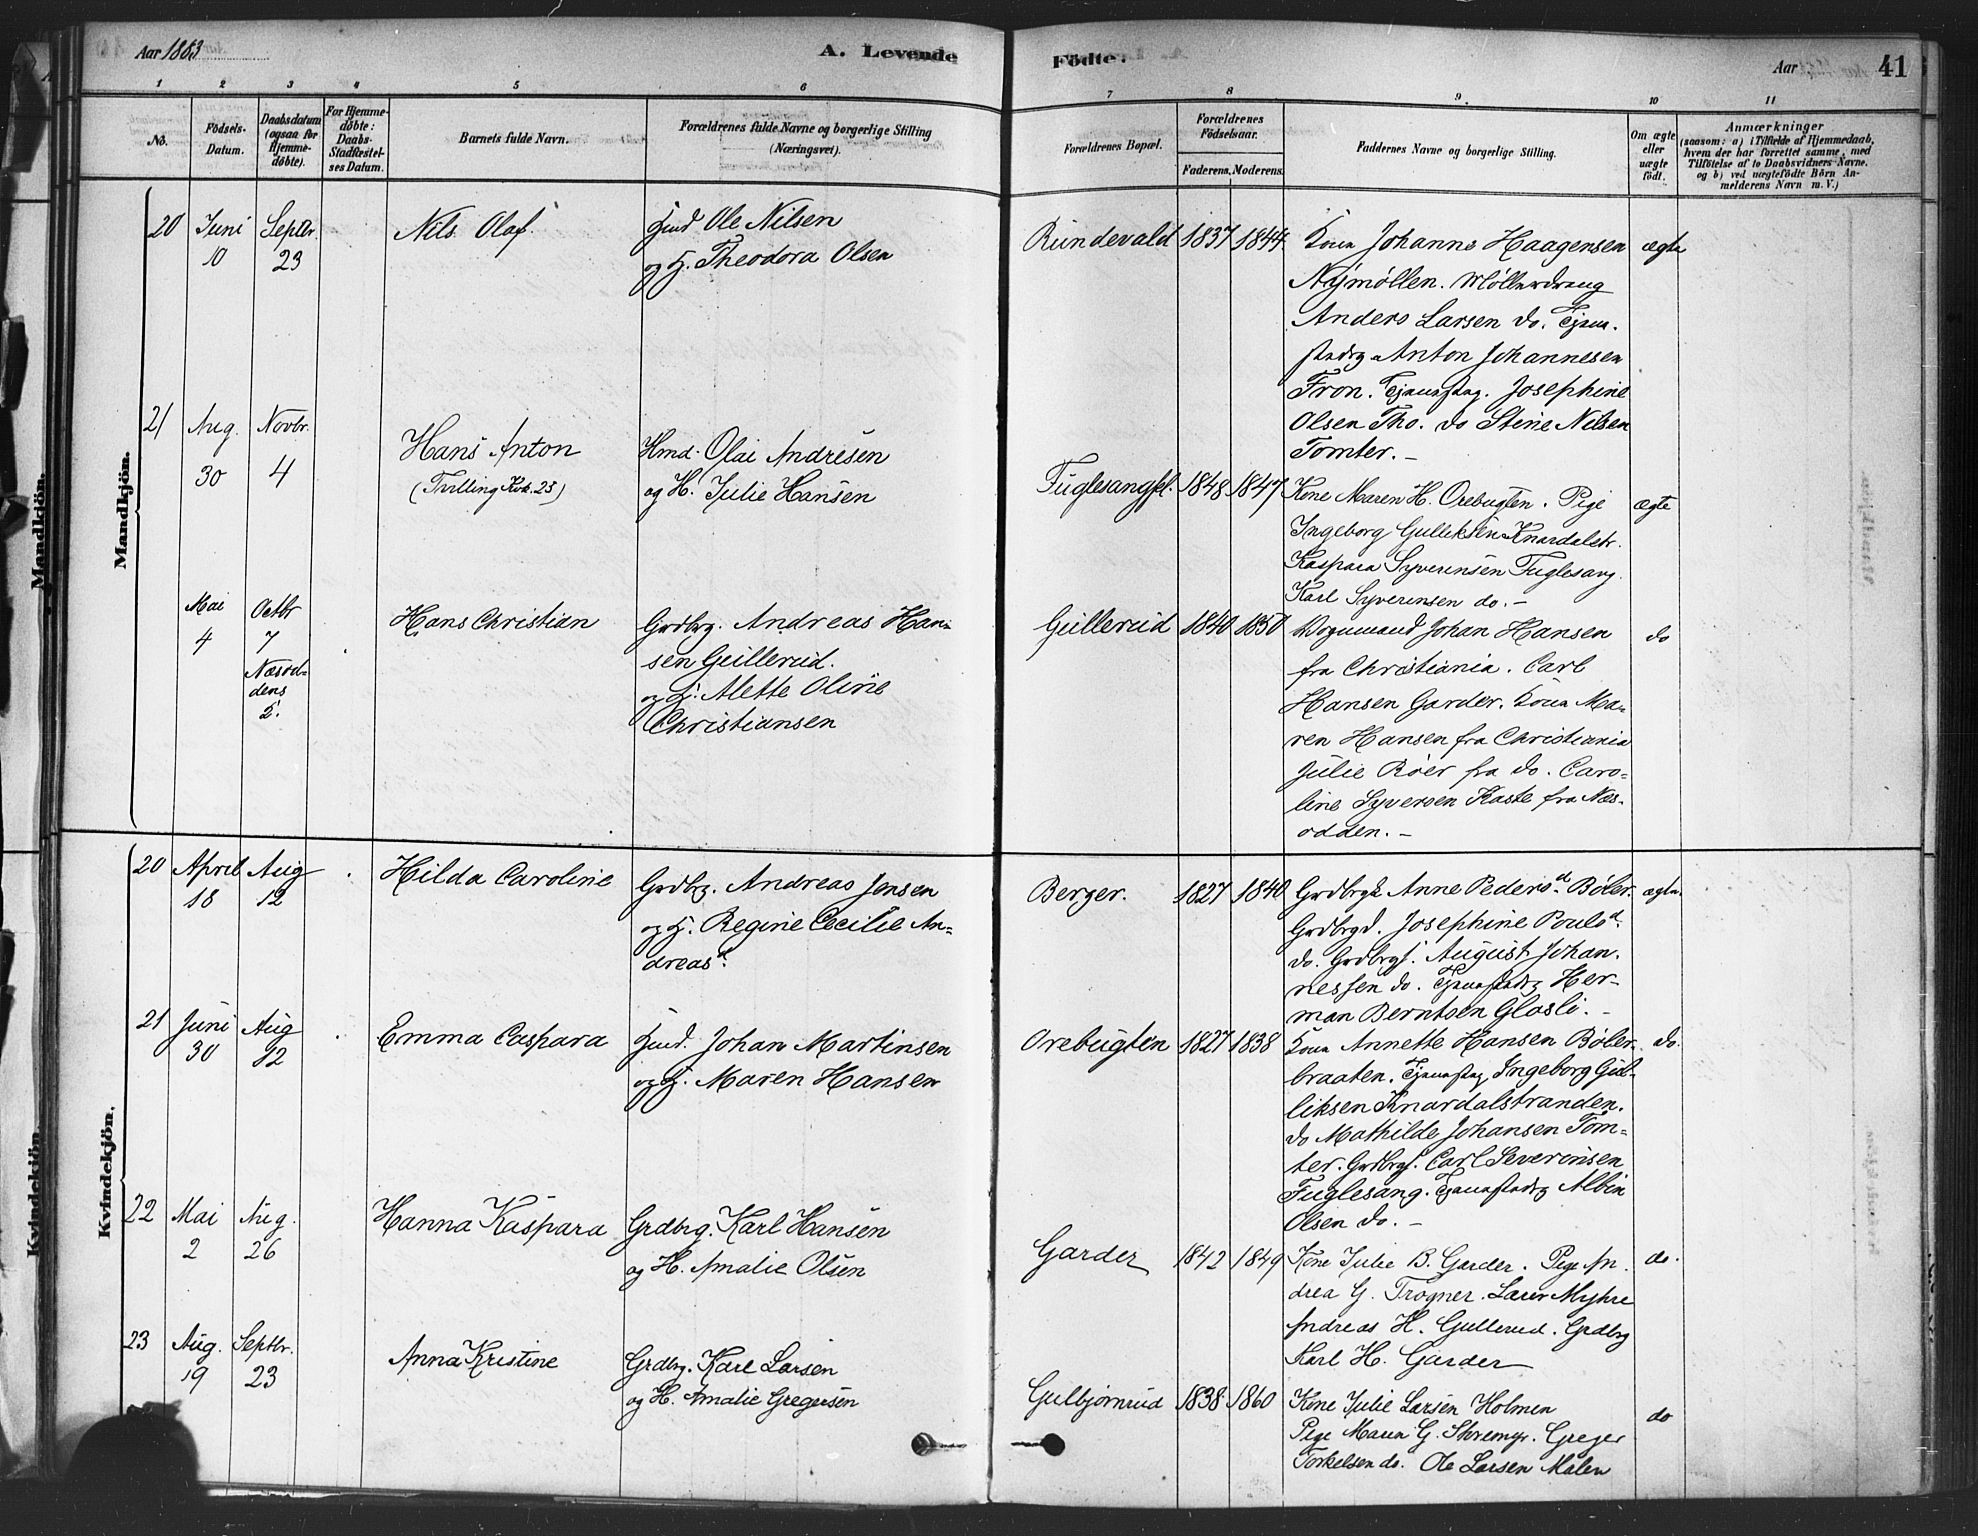 Aar 1883
A. Levende
Födte.
Aar
41
1 2 3 4 5 6 7 8 9 10 11
No.
Födsels-
Datum.
Daabsdatum
(ogsaa for
Hjemme-
döbte).
For Hjemme-
döbte:
Daabs-
Stadfæstel-
ses Datum.
Barnets fulde Navn.
Forældrenes fulde Navne og borgerlige Stilling
(Næringsvei).
Forældrenes Bopæl.
Forældrenes
Födselsaar.
Faderens. Moderens.
Faddernes Navne og borgerlige Stilling.
Om ægte
eller
uægte
födt.
Anmærkninger
(saasom: a) i Tilfælde af Hjemmedaab,
hvem der har forrettet samme, med
Tilföielse af to Daabsvidners Navne.
og b) ved uægtefödte Börn An-
melderens Navn m. V.)
Mandkjön.
Mandkjön.
20 Juni Septbr.
10 23
Nils Olaf
Hmd Ole Nilsen
og H. Theodora Olsen
Rundevald 1837 1844
Kone Johanne Haagensen
Nýmøllen. Møllerdreng
Anders Larsen do. Tjene-
stedrg Anton Johannesen
Fron. Tjenestpg. Josephine
Olsen Tho. do Stine Nilsen
Tomter. –
ægte
21 Aug. Novbr.
30 4
Hans Anton
(Tvilling Kvk. 23)
Hmd. Olai Andresen
og H. Julie Hansen
Fuglesangpl. 1848 1847
Kone Maren H. Orebugten. Pige
Ingeborg Gulliksen Knardalstr.
Kaspara Syverinsen Fuglesang
Karl Syverinsen do. –
ægte
Mai Octbr
4 7
Næsod-
dens
S.
Hans Christian
Grdbrg. Andreas Han-
sen Gullerud.
og H. Alette Oline
Christiansen
Gullerud 1840 1850
Vognmand Johan Hansen
fra Christiania. Carl
Hansen Garder. Kone Ma-
ren Hansen fra Christiania
Julie Röer fra do. Caro-
line Syversen Kaste fra Næs-
odden. –
do
Kvindekjön.
Kvindekjön.
20 April Aug
18 12
Hilda Caroline
Grdbrg. Andreas Jensen
og H. Regine Cecilie An-
dreasd.
Berger. 1827 1840
Grdbrgk Anne Pedersd. Böler.
Grdbrgd. Josephine Poulsd.
do. Grdbrgs. August Johan-
nessen do. Tjenestedrg Her-
man Berntsen Glasli. –
ægte.
21 Juni Aug
30 12
Emma Caspara
Hmd. Johan Martinsen
og H. Maren Hansen
Orebugten 1827 1838
Kone Annette Hansen Böler-
braaten. Tjenestpg Ingeborg Gul-
liksen Knardalstranden.
do Mathilde Johansen Tom-
ter. Grdbrgs. Carl Severinsen
Fuglesang. Tjenestedrg Albin
Olsen do. –
do.
22 Mai Aug.
2 26
Hanna Kaspara
Grdbrg. Karl Hansen
og H. Amalie Olsen
Garder 1842 1849
Kone Julie B. Garder. Pige An-
drea G. Trogner. Lars Myhre
Andreas H. Gullerud. Grdbrg
Karl H. Garder
do.
23 Aug. Septbr.
19 23
Anna Kristine
Grdbrg. Karl Larsen
og H. Amalie Gregersen
Gulbjørnrud 1838 1860
Kone Julie Larsen Holmen
Pige Maren G. Skremyr. Greger
Torkelsen do. Ole Larsen Malen
do